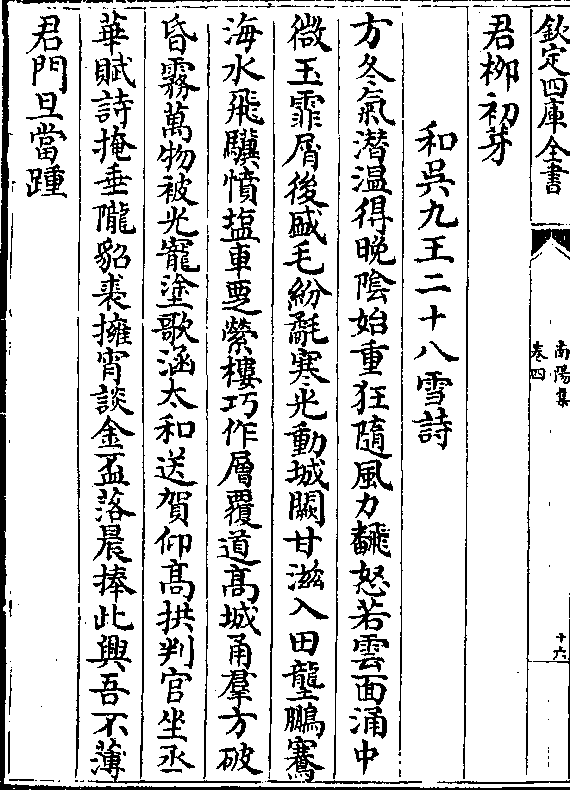 欽定四庫全書
南陽集
卷四
十六
君栁初芽
和吳九王二十八雪詩
方冬氣潛温得晚隂始重狂隨風力飜怒若雲面涌中
微玉霏屑後盛毛紛氄寒光動城闕甘滋入田壟鵬騫
海水飛驥憤塩車耍縈樓巧作層覆道髙城甬羣方破
昏霧萬物被光寵塗歌涵太和送賀仰髙拱判官坐丞
華賦詩掩垂隴貂裘擁宵談金盃落晨捧此興吾不薄
君門旦當踵